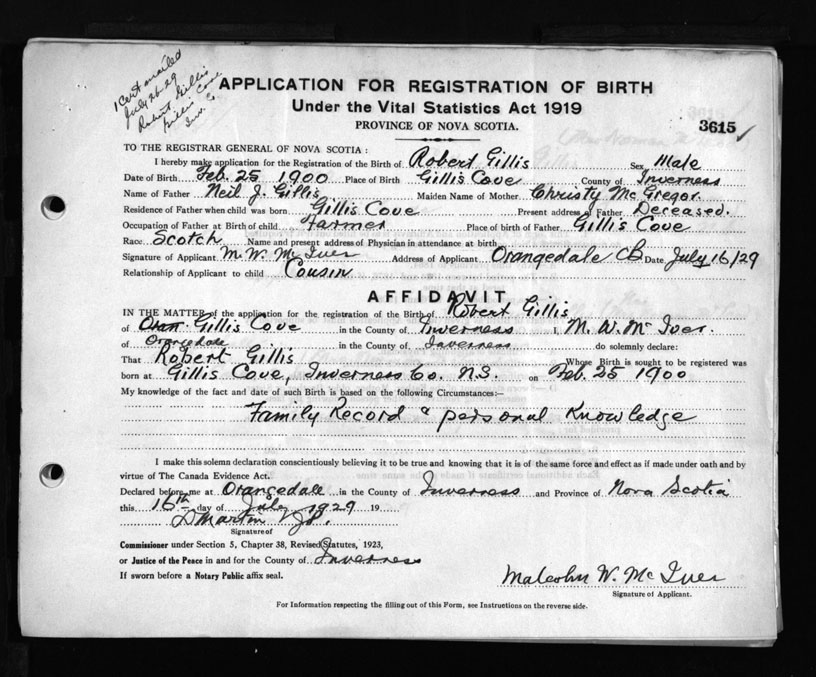 1 Cert mailed
July 26-29
Robert Gillis
Gillis Cove
Inv. Co.
APPLICATION FOR REGISTRATION OF BIRTH
Under the Vital Statistics Act 1919
PROVINCE OF NOVA SCOTIA.
3615
TO THE REGISTRAR GENERAL OF NOVA SCOTIA :
I hereby make application for the Registration of the Birth of Robert Gillis Sex Male
Date of Birth Feb. 25 1900 Place of Birth Gillis Cove County of Inverness
Name of Father Neil J. Gillis Maiden Name of Mother Christy McGregor
Residence of Father when child was born Gillis Cove Present address of Father Deceased.
Occupation of Father at Birth of child Farmer Place of birth of Father Gillis Cove
Race Scotch Name and present address of Physician in attendance at birth
Signature of Applicant M. W. McIver Address of Applicant Orangedale CB Date July 16/29
Relationship of Applicant to child Cousin
AFFIDAVIT
IN THE MATTER of the application for the registration of the Birth of Robert Gillis
of Gillis Cove in the County of Inverness I, M. W. McIver.
of Orangedale in the County of Inverness do solemnly declare:
That Robert Gillis Whose Birth is sought to be registered was
born at Gillis Cove, Inverness Co. N.S. on Feb. 25 1900
My knowledge of the fact and date of such Birth is based on the following Circumstances:—
Family Record & personal Knowledge
I make this solemn declaration conscientiously believing it to be true and knowing that it is of the same force and effect as if made under oath and by
virtue of The Canada Evidence Act.
Declared before me at Orangedale in the County of Inverness and Province of Nova Scotia
this 16th day of July 1929 19
D Martin J.P.
Signature of
Commissioner under Section 5, Chapter 38, Revised Statutes, 1923,
or Justice of the Peace in and for the County of Inverness
If sworn before a Notary Public affix seal.
Malcolm W. McIver
Signature of Applicant.
For Information respecting the filling out of this Form, see Instructions on the reverse side.